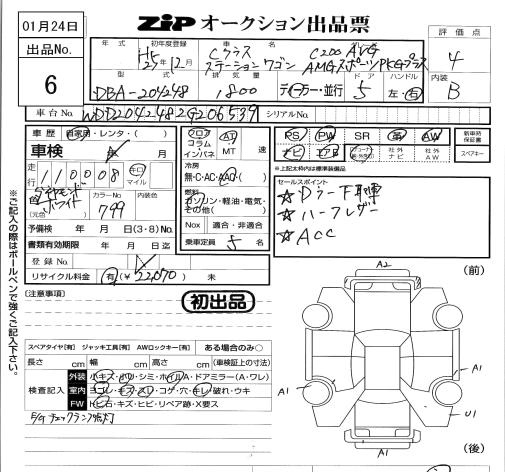 01月24日
出品No.
6
ZIP オークション出品票
評価点
4
内装
B
年式
初年度登録 H25 年 12月
車名 Cクラス ステーションワゴン
C200 AVG AMGスポーツPKGプラス
型式 DBA-204248
排気量 1800
ディーラー・並行
ドア 5
ハンドル 左・右
車台No. WDD2042482G206539
シリアルNo.
車歴 自家用・レンタ・( )
車検 年 月
走行 110008 キロ マイル
色 ダイヤモンドホワイト (元色)
カラーNo. 799
予備検 年 月 日(3・8)No.
書類有効期限 年 月 日迄
登録No.
リサイクル料金 有(¥22,070) 未
フロア コラム インパネ
AT MT 速
冷房 無・C・AC・AAC
燃料 ガソリン・軽油・電気・その他( )
Nox 適合・非適合
乗車定員 5 名
PS PW SR 革 AW
ナビ エアB 社外ナビ 社外AW
新車時保証書
スペアキー
*上記太枠内は標準装備品
セールスポイント
☆Dラー下取車
☆ハーフレザー
☆ACC
初出品
[注意事項]
スペアタイヤ[有] ジャッキ工具[有] AWロックキー[有] ある場合のみ○
長さ cm 幅 cm 高さ cm (車検証上の寸法)
検査記入
外装 小キズ・凹・シミ・ホイルA・ドアミラー(A・ワレ)
室内 ヨゴレ・キズ・スレ・コゲ・穴・キレ・破れ・ウキ
FW トビ石・キズ・ヒビ・リペア跡・X要ス
E/Gチェックランプ点灯
※ご記入の際はボールペンで強くご記入下さい。
(前)
A2
A1
A1
U1
A1
(後)